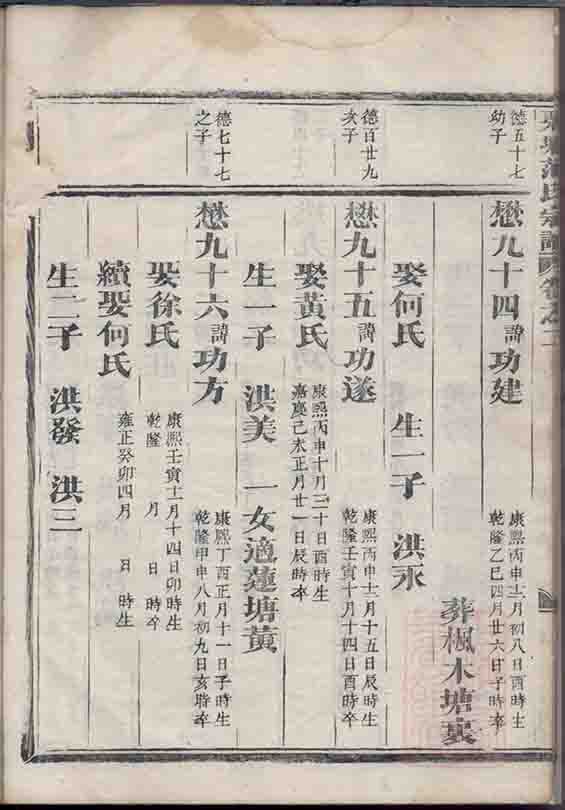 氏宗譜 卷之二
德五十七
幼子
懋九十四 諱 功建
康熙丙申十二月初八日酉時生
乾隆乙巳四月廿六日子時卒
葬楓木塘裏
娶何氏 生一子 洪永
德百廿九
次子
懋九十五 諱 功遂
康熙丙申十二月十五日辰時生
乾隆壬寅十月十四日酉時卒
娶黃氏
康熙丙申十月三十日酉時生
嘉慶己未正月廿一日辰時卒
生一子 洪美 一女適蓮塘黃
德七十七
之子
懋九十六 諱 功方
康熙丁酉正月十一日子時生
乾隆甲申八月初九日亥時卒
娶徐氏
康熙壬寅十二月十四日卯時生
乾隆 月 日 時卒
續娶何氏
雍正癸卯四月 日 時生
生二子 洪發 洪三